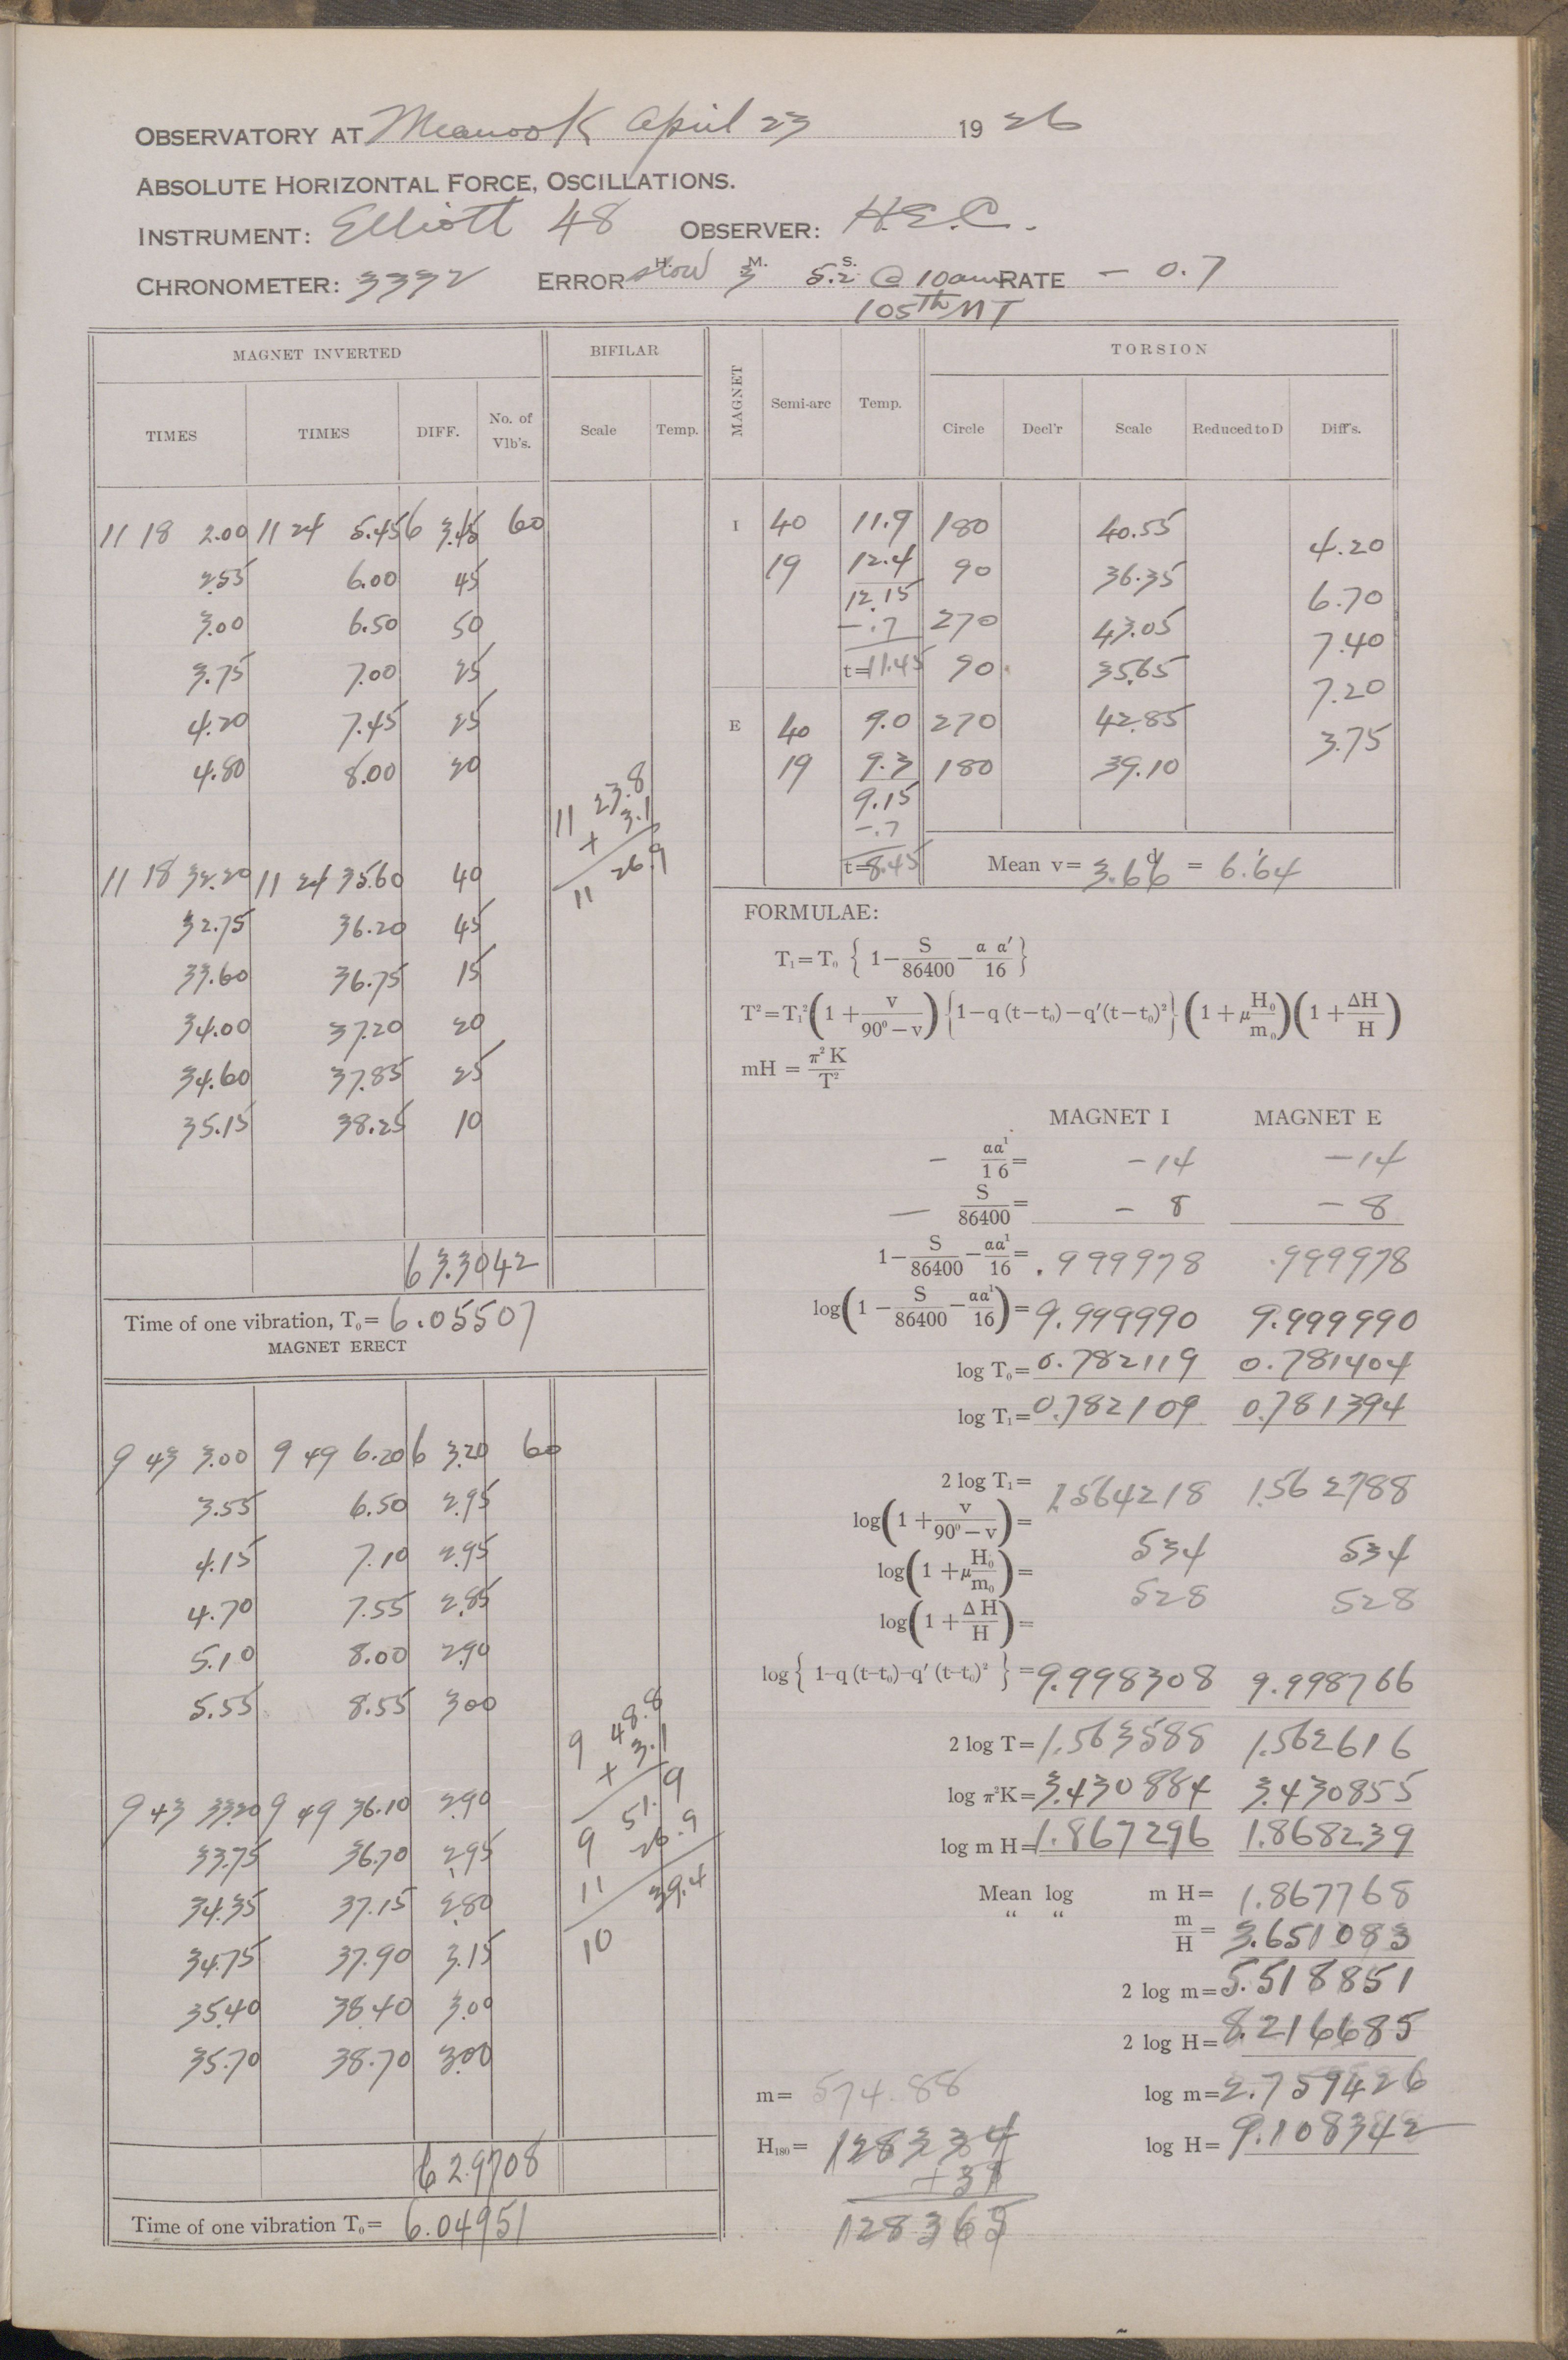 OBSERVATORY AT Meanook April 23 1926
ABSOLUTE HORIZONTAL FORCE, OSCILLATIONS.
INSTRUMENT: Elliott 48 OBSERVER: H.E.C.
CHRONOMETER: 3392 ERROR slow H. 3 M. 5.2 S. @ 10am RATE - 0.7
105th MT
MAGNET INVERTED
TIMES TIMES DIFF. No. of Vib's.
BIFILAR
Scale Temp.
11 18 2.00 11 24 5.45 6 3.45 60
2.55 6.00 45
3.00 6.50 50
3.75 7.00 25
4.20 7.45 25
4.80 8.00 20
11 23.8
+ 3.1
11 26.9
11 18 32.20 11 24 35.60 40
32.75 36.20 45
33.60 36.75 15
34.00 37.20 20
34.60 37.85 25
35.15 38.25 10
6 3.3042
Time of one vibration, T₀= 6.05507
MAGNET ERECT
9 43 3.00 9 49 6.20 6 3.20 60
3.55 6.50 2.95
4.15 7.10 2.95
4.70 7.55 2.85
5.10 8.00 2.90
5.55 8.55 3.00
9 48.8
+ 3.1
9 51.9
11 26.9
10 39.4
9 43 33.20 9 49 36.10 2.90
33.75 36.70 2.95
34.35 37.15 2.80
34.75 37.90 3.15
35.40 38.40 3.00
35.70 38.70 3.00
6 2.9708
Time of one vibration T₀= 6.04951
MAGNET Semi-arc Temp.
TORSION
Circle Decl'r Scale Reduced to D Diff's.
I 40 11.9 180 40.55
4.20
19 12.4 90 36.35
12.15
6.70
-.7 270 43.05
7.40
t=11.45 90 35.65
7.20
E 40 9.0 270 42.85
3.75
19 9.3 180 39.10
9.15
-.7
t=8.45
Mean v= 3.66ᵈ = 6.′64
FORMULAE:
T₁=T₀ { 1 - S/86400 - α α′/16 }
T²=T₁² (1 + v/90⁰-v) {1-q (t-t₀)-q′(t-t₀)²} (1 + μ H₀/m₀) (1 + ΔH/H)
mH = π² K/T²
MAGNET I MAGNET E
- αα¹/16 = -14 -14
- S/86400 = - 8 - 8
1 - S/86400 - αα¹/16 = .999978 .999978
log(1 - S/86400 - αα¹/16) = 9.999990 9.999990
log T₀= 0.782119 0.781404
log T₁= 0.782109 0.781394
2 log T₁= 1.564218 1.562788
log(1 + v/90⁰-v) = 534 534
log(1 + μ H₀/m₀) = 528 528
log(1 + ΔH/H) =
log { 1-q (t-t₀)-q′ (t-t₀)² } = 9.998308 9.998766
2 log T= 1.563588 1.562616
log π²K= 3.430884 3.430855
log m H= 1.867296 1.868239
Mean log m H= 1.867768
“ “ m/H = 3.651083
2 log m= 5.518851
2 log H= 8.216685
m= 574.88 log m= 2.759426
H₁₈₀= 128334 log H= 9.108342
+31
128365